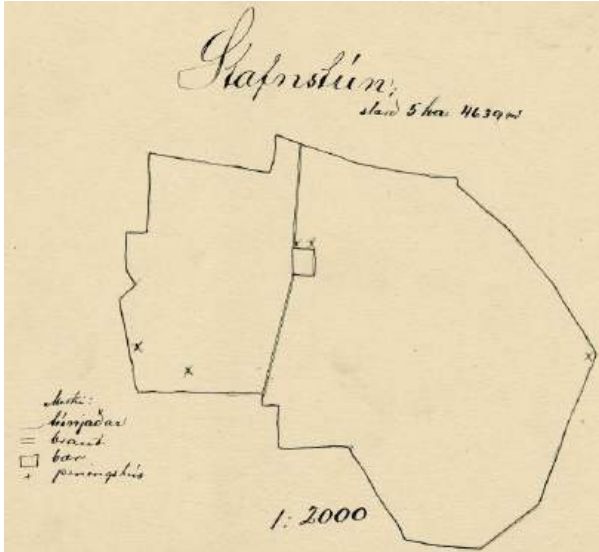 Stafnstún,
stærð 5 ha 4639 m²
Merki:
túnjaðar
braut
bær
peningshús
1:2000